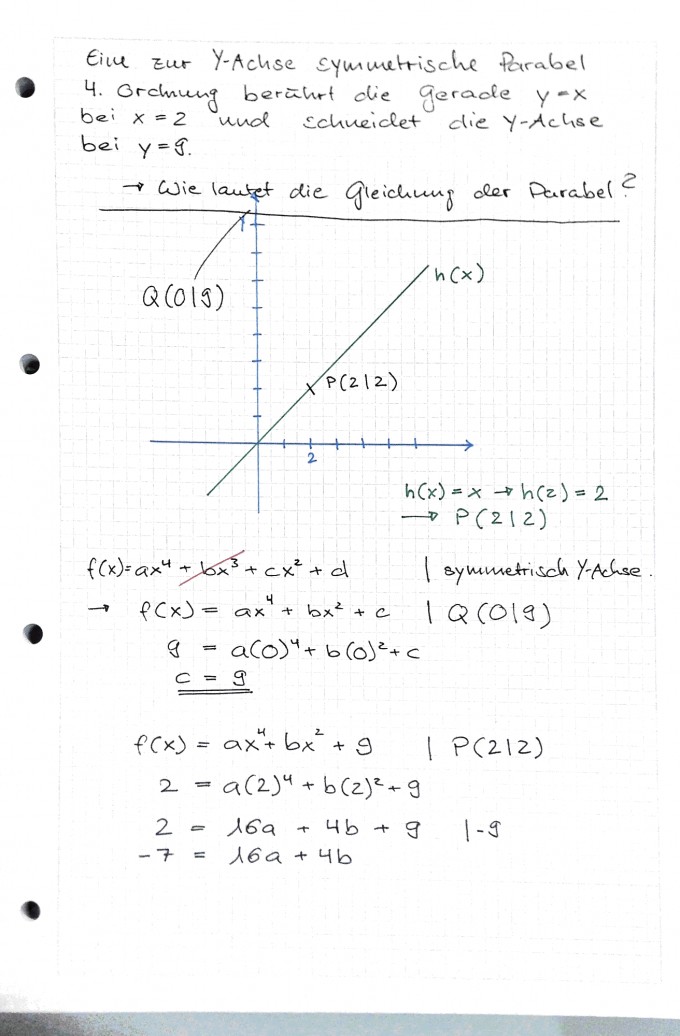 Eine zur Y-Achse symmetrische Parabel
4. Ordnung berührt die Gerade y=x
bei x=2 und schneidet die Y-Achse
bei y=9.
→ Wie lautet die Gleichung der Parabel?
Q(0|9)
h(x)
P(2|2)
2
h(x) = x → h(2) = 2
→ P(2|2)
f(x)=ax⁴ + bx³ + cx² + d | symmetrisch Y-Achse.
→ f(x) = ax⁴ + bx² + c | Q(0|9)
9 = a(0)⁴ + b(0)² + c
c = 9
f(x) = ax⁴ + bx² + 9 | P(2|2)
2 = a(2)⁴ + b(2)² + 9
2 = 16a + 4b + 9 |-9
-7 = 16a + 4b